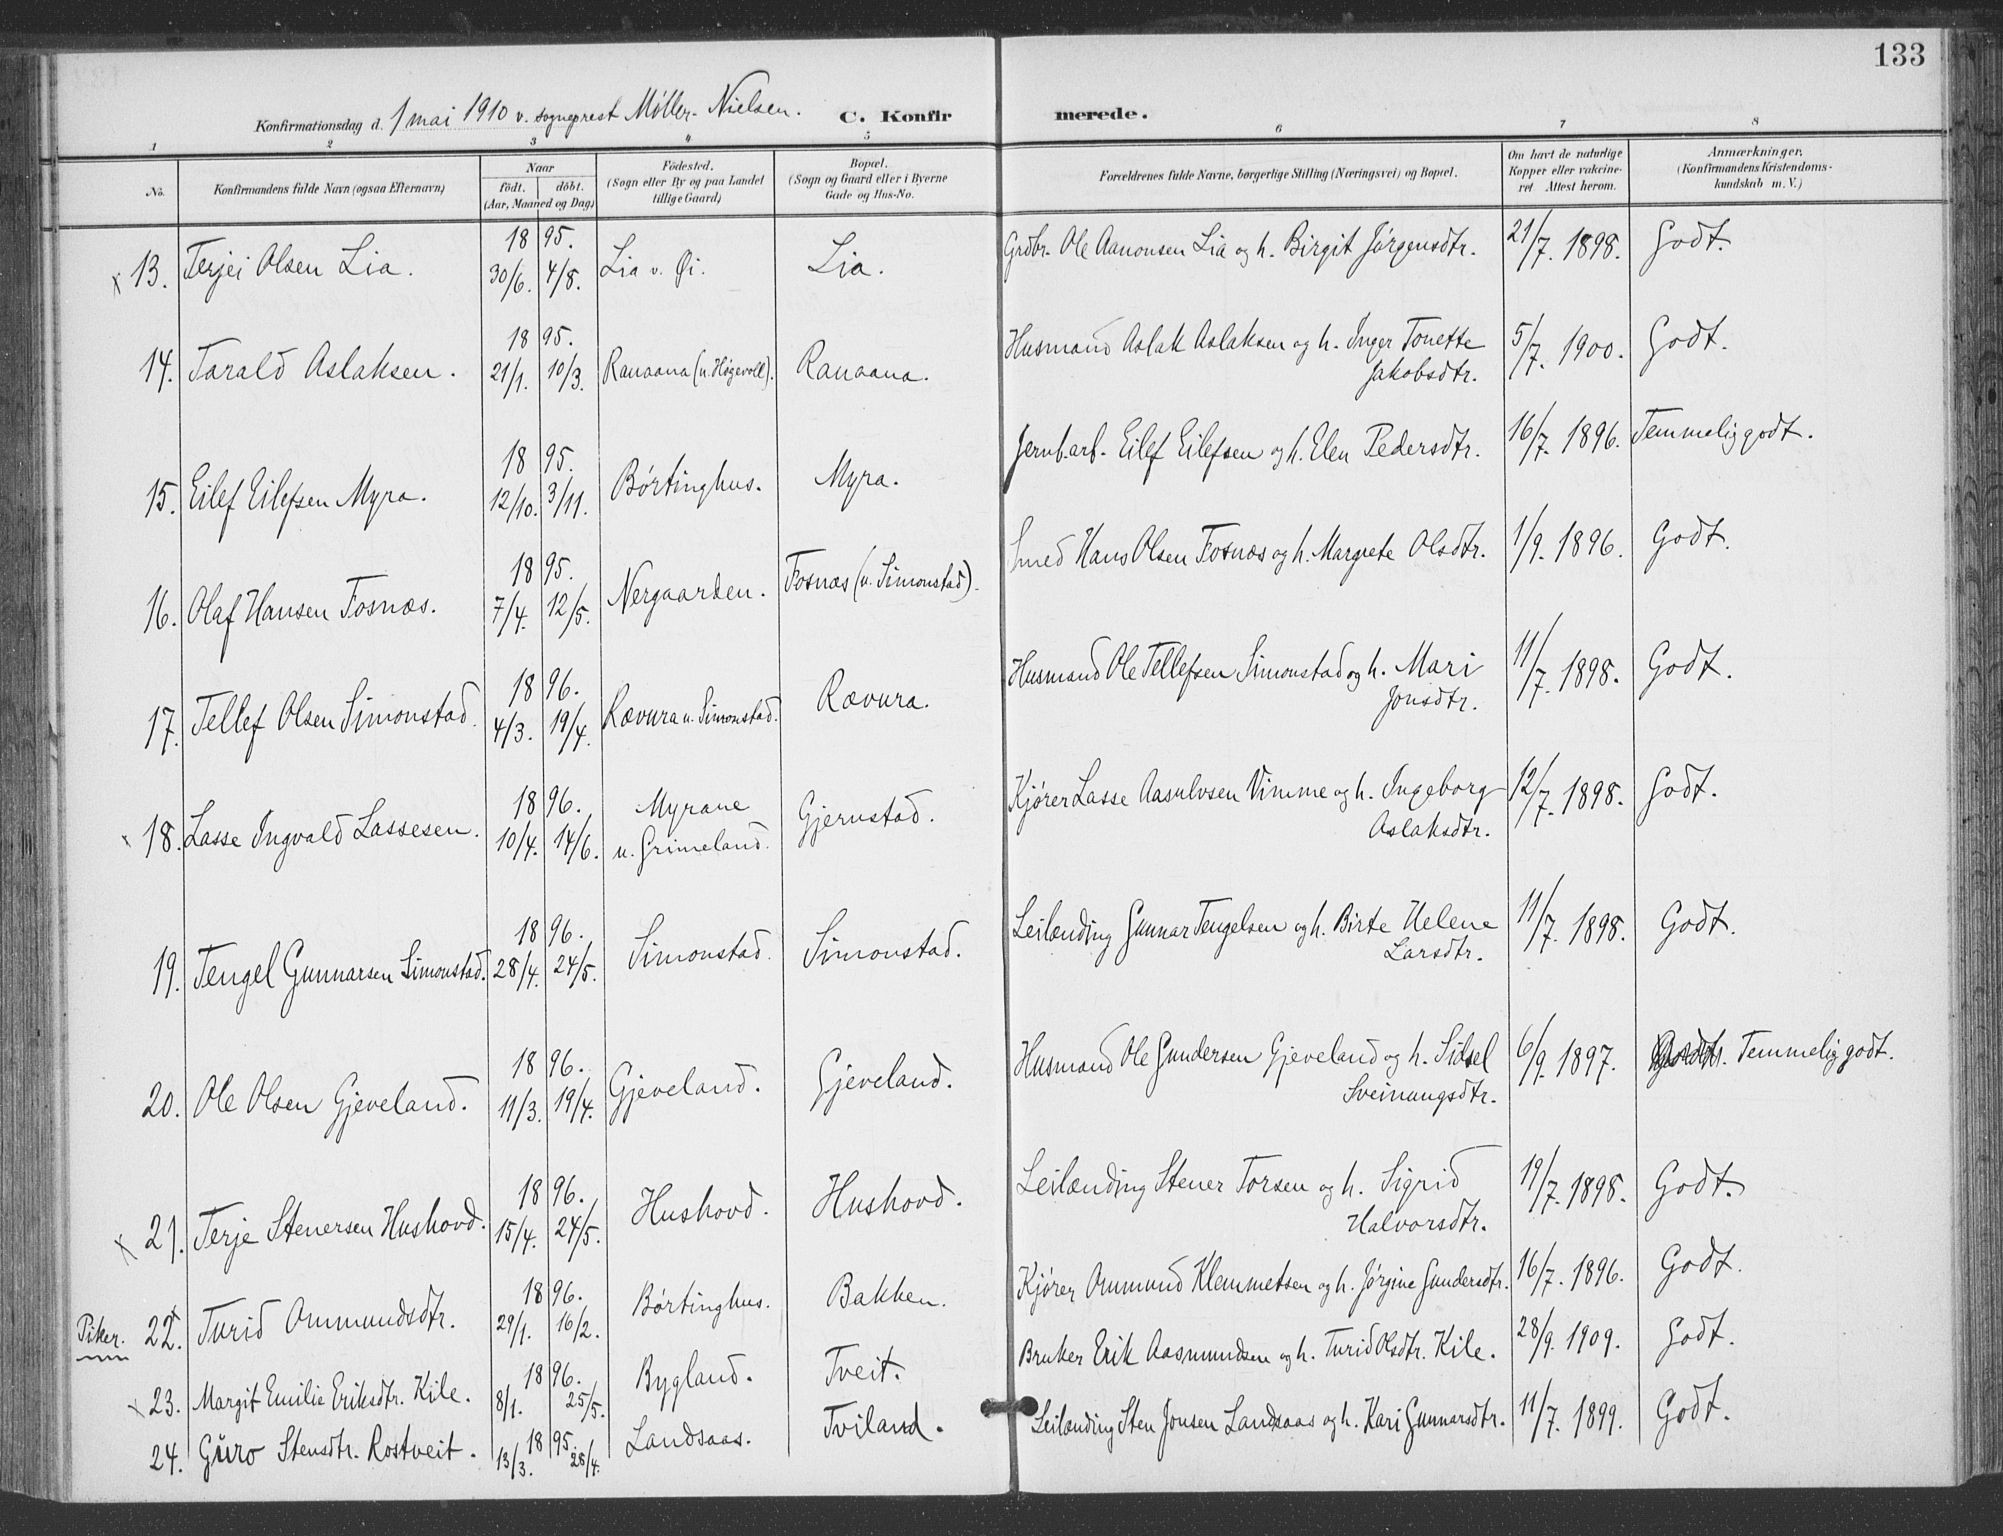 133
Konfirmationsdag d. 1 mai 1910 v. sogneprest Møller-Nielsen. C. Konfirmerede.
1 2 3 4 5 6 7 8
No. Konfirmandens fulde Navn (ogsaa Efternavn) Naar født. døbt. (Aar, Maaned og Dag) Fødested. (Sogn eller By og paa Landet tillige Gaard) Bopæl. (Sogn og Gaard eller i Byerne Gade og Hus-No. Forældrenes fulde Navne, borgerlige Stilling (Næringsvei) og Bopæl. Om havt de naturlige Kopper eller vakcineret Attest herom. Anmærkninger. (Konfirmandens Kristendomskundskab m. V.)
x 13. Terjei Olsen Lia. 1895. 30/6. 4/8. Lia v. Øi. Lia. Grdbr. Ole Aanonsen Lia og h. Birgit Jørgensdtr. 21/7. 1898. Godt.
14. Tarald Aslaksen. 1895. 21/1. 10/3. Ranaana (u. Høgevoll). Ranaana. Husmand Aslak Aslaksen og h. Inger Tonette Jakobsdtr. 5/7. 1900. Godt.
15. Eilef Eilefsen Myra. 1895. 12/10. 3/11. Børtinghus. Myra. Jernb.arb. Eilef Eilefsen og h. Elen Pedersdtr. 16/7. 1896. Temmelig godt.
16. Olaf Hansen Fosnæs. 1895. 7/4. 12/5. Nergaarden. Fosnæs (u. Simonstad). Smed Hans Olsen Fosnæs og h. Margrete Olsdtr. 1/9. 1896. Godt.
17. Tellef Olsen Simonstad. 1896. 4/3. 19/4. Rævura u. Simonstad. Rævura. Husmand Ole Tellefsen Simonstad og h. Mari Jonsdtr. 11/7. 1898. Godt.
x 18. Lasse Ingvald Lassesen. 1896. 10/4. 14/6. Myrane u. Grimeland. Gjernstad. Kjører Lasse Aasulvsen Vimme og h. Ingeborg Aslaksdtr. 12/7. 1898. Godt.
19. Tengel Gunnarsen Simonstad. 1896. 28/4. 24/5. Simonstad. Simonstad. Leilænding Gunnar Tengelsen og h. Birte Helene Larsdtr. 11/7. 1898. Godt.
20. Ole Olsen Gjeveland. 1896. 11/3. 19/4. Gjeveland. Gjeveland. Husmand Ole Gundersen Gjeveland og h. Sidsel Sveinungsdtr. 6/9. 1897. Temmelig godt.
x 21. Terje Stenersen Hushovd. 1896. 15/4. 24/5. Hushovd. Hushovd. Leilænding Stener Torsen og h. Sigrid Halvorsdtr. 19/7. 1898. Godt.
Piker. 22. Turid Ommundsdtr. 1896. 29/1. 16/2. Børtinghus. Bakken. Kjører Ommund Klemmetsen og h. Jørgine Gundersdtr. 16/7. 1896. Godt.
x 23. Margit Emilie Eriksdtr. Kile. 1896. 8/1. 25/5. Bygland. Tveit. Bruker Erik Aasmundsen og h. Turid Olsdtr. Kile. 28/9. 1909. Godt.
24. Guro Stensdtr. Rostveit. 1895. 13/3. 28/4. Landsaas. Tviland. Leilænding Sten Jonsen Landsaas og h. Kari Gunnarsdtr. 11/7. 1899. Godt.